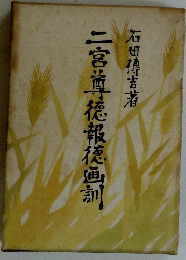 石田傳吉著
二宮尊徳報徳画訓